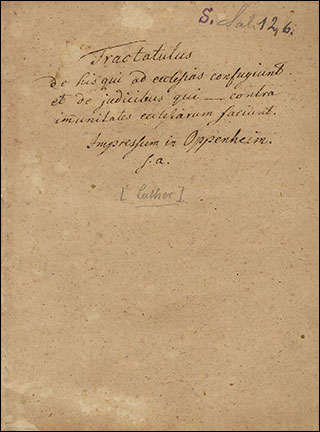 S. Sal. 12, 6.
Tractatulus
de his qui ad ecclesias confugiunt
et de judicibus qui — contra
imunitates ecclesiarum faciunt.
Impressum in Oppenheim.
s. a.
[Luther]